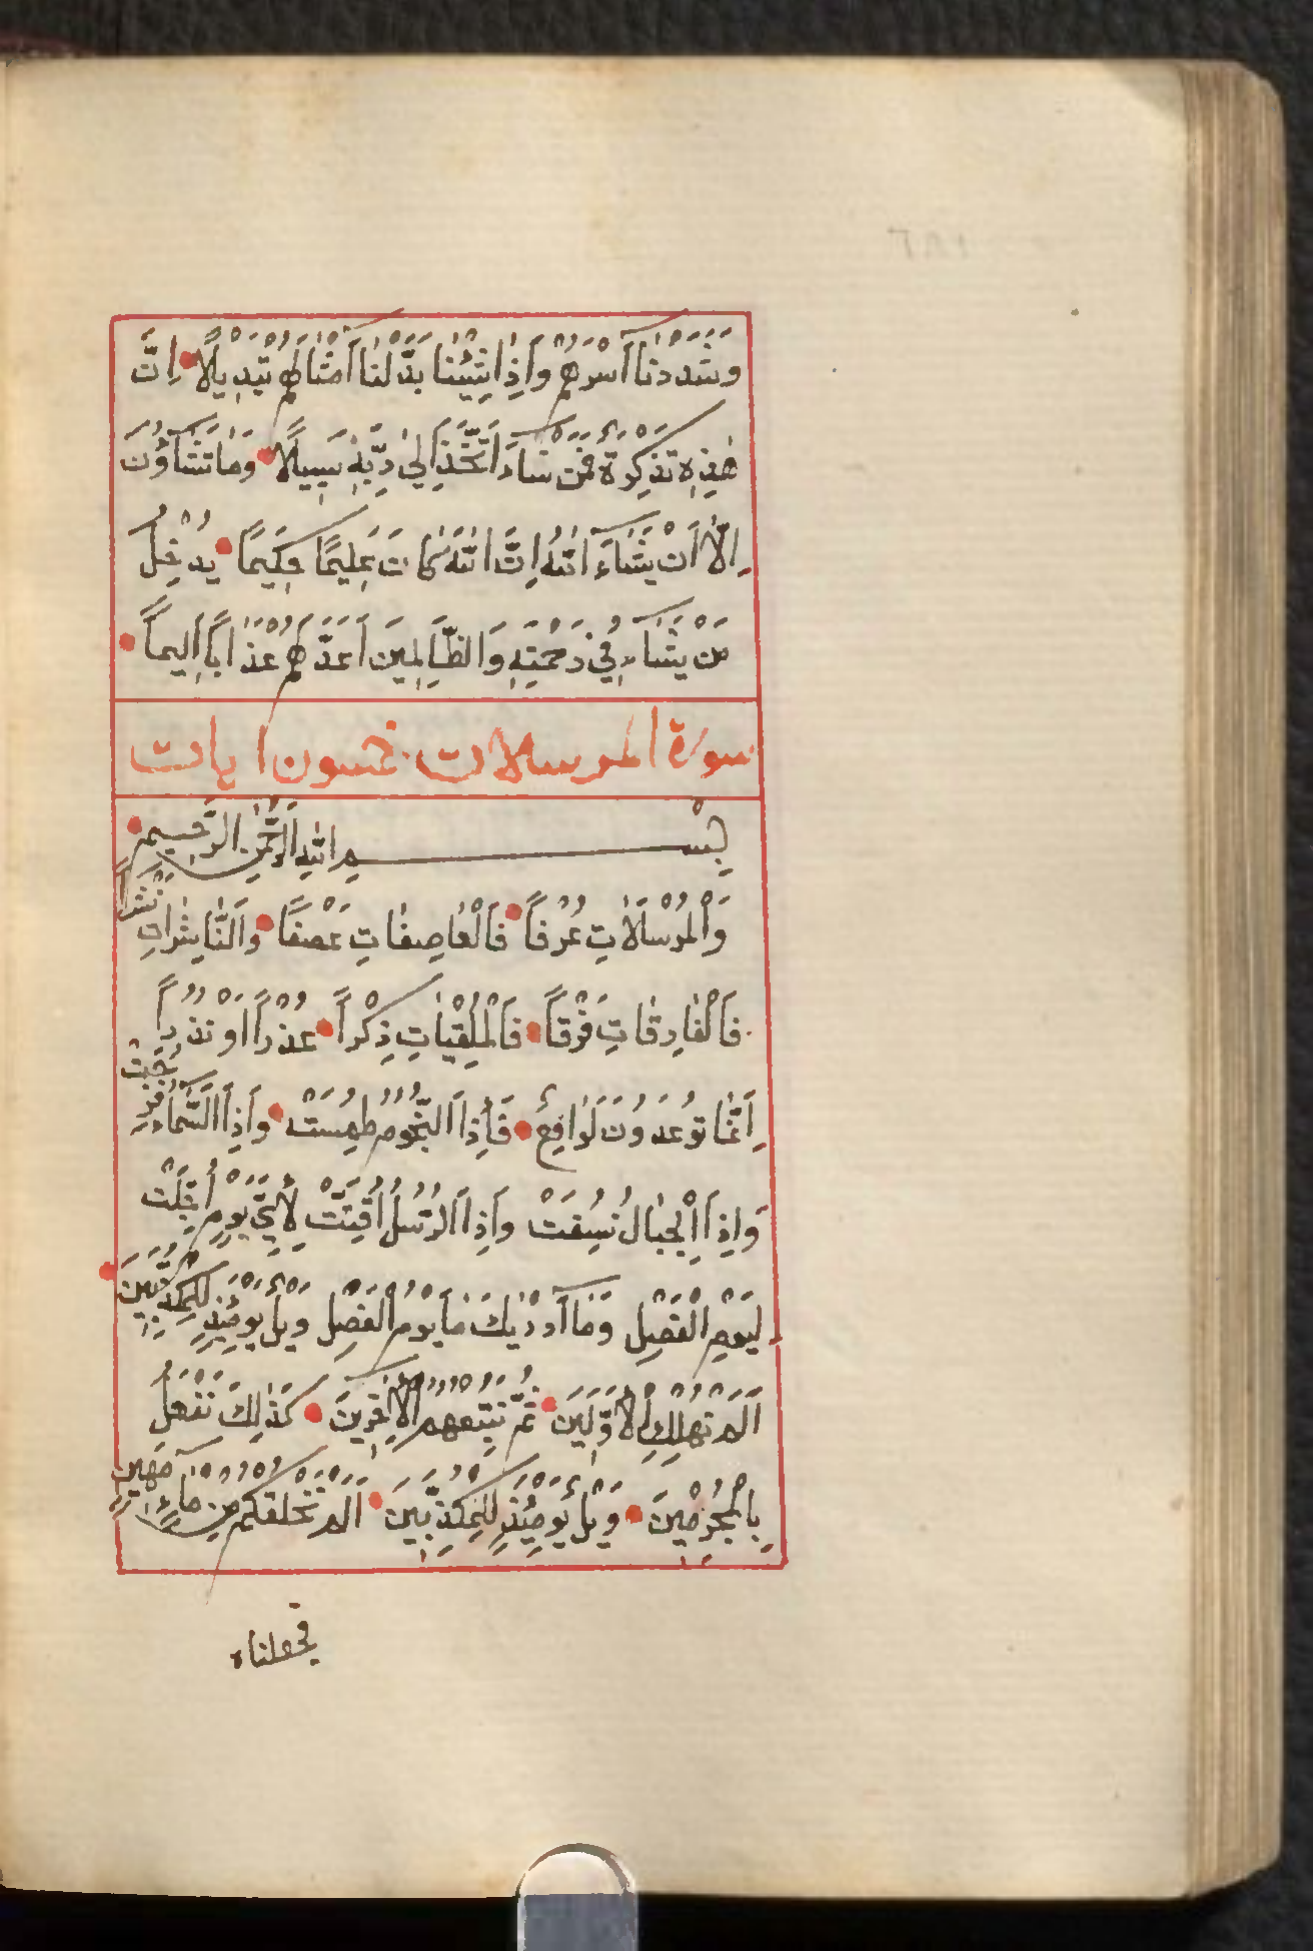 وَشَدَدْنَٓا اَسْرَهُمْ وَاِذَا شِئْنَا بَدَّلْنَٓا اَمْثَالَهُمْ تَبْدِيلًا اِنَّ
هٰذِهٖ تَذْكِرَةٌ فَمَنْ شَٓاءَ اتَّخَذَ اِلٰى رَبِّهٖ سَبِيلًا وَمَا تَشَٓاؤُنَ
اِلَّٓا اَنْ يَشَٓاءَ اللّٰهُ اِنَّ اللّٰهَ كَانَ عَلِيمًا حَكِيمًا يُدْخِلُ
مَنْ يَشَٓاءُ فِي رَحْمَتِهٖ وَالظَّالِمِينَ اَعَدَّ لَهُمْ عَذَابًا اَلِيماً
سورة المرسلات خمسون ايات
بِسْمِ اللّٰهِ الرَّحْمٰنِ الرَّحِيمِ
وَالْمُرْسَلَاتِ عُرْفاً فَالْعَاصِفَاتِ عَصْفًا وَالنَّاشِرَاتِ نَشْراً
فَالْفَارِقَاتِ فَرْقاً فَالْمُلْقِيَاتِ ذِكْراً عُذْراً اَوْ نُذُراً
اِنَّمَا تُوعَدُونَ لَوَاقِعٌ فَاِذَا النُّجُومُ طُمِسَتْ وَاِذَا السَّمَٓاءُ فُرِجَتْ
وَاِذَا الْجِبَالُ نُسِفَتْ وَاِذَا الرُّسُلُ اُقِّتَتْ لِاَيِّ يَوْمٍ اُجِّلَتْ
لِيَوْمِ الْفَصْلِ وَمَٓا اَدْرٰيكَ مَا يَوْمُ الْفَصْلِ وَيْلٌ يَوْمَئِذٍ لِلْمُكَذِّبِينَ
اَلَمْ نُهْلِكِ الْاَوَّلِينَ ثُمَّ نُتْبِعُهُمُ الْاٰخِرِينَ كَذٰلِكَ نَفْعَلُ
بِالْمُجْرِمِينَ وَيْلٌ يَوْمَئِذٍ لِلْمُكَذِّبِينَ اَلَمْ نَخْلُقْكُمْ مِنْ مَٓاءٍ مَهِينٍ
فجعلناه